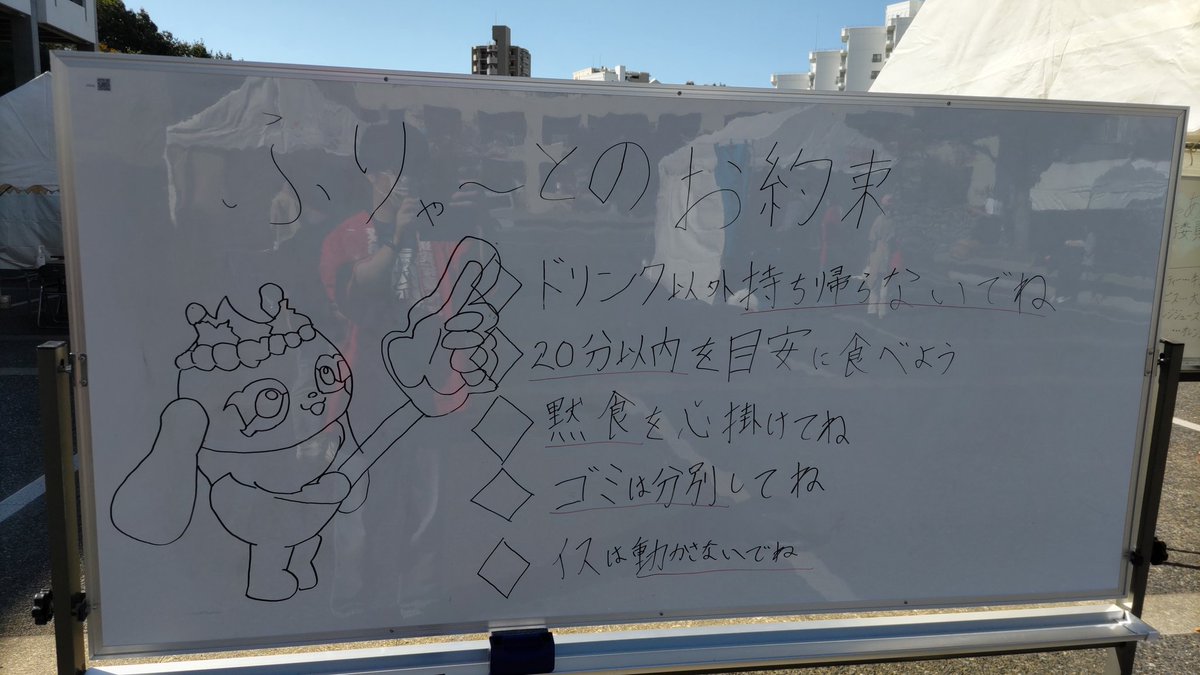 ふりゃ〜とのお約束
◇ ドリンク以外持ち帰らないでね
◇ 20分以内を目安に食べよう
◇ 黙食を心掛けてね
◇ ゴミは分別してね
◇ イスは動かさないでね